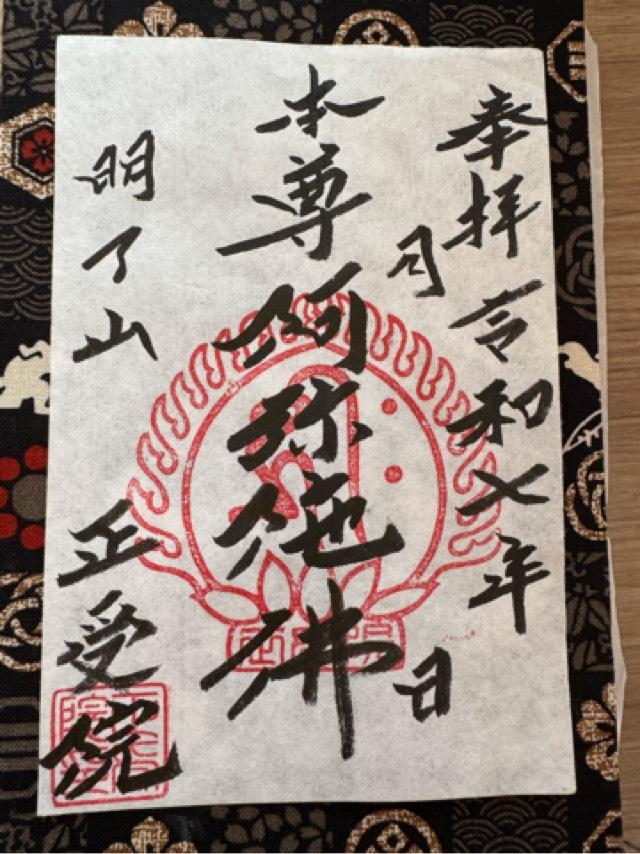 奉拝 令和七年
月 日
本尊阿弥陀佛
明了山 正受院